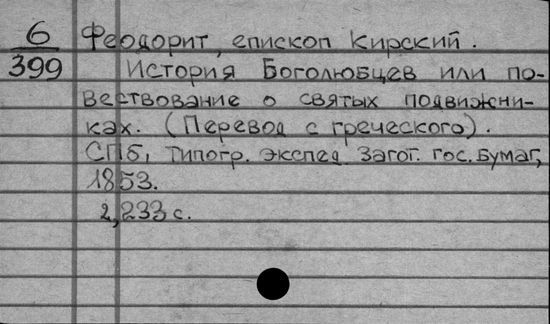 6 Феодорит, епископ Кирский.
399 История Боголюбцев или по-
вествование о святых подвижни-
ках. (Перевод с греческого).
СПб, типогр. экспед. Загот. гос. бумаг,
1853.
2,233 с.